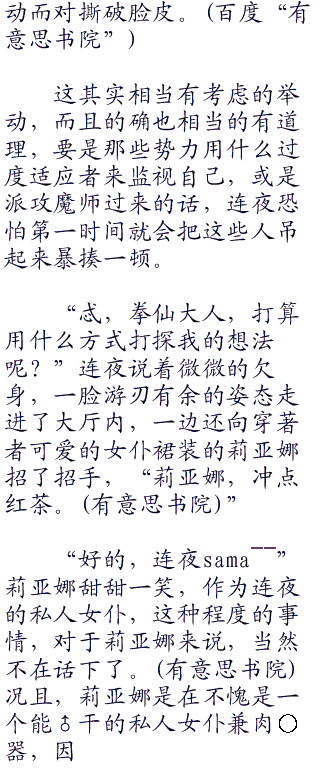 动而对撕破脸皮。(百度“有
意思书院”)
这其实相当有考虑的举
动，而且的确也相当的有道
理，要是那些势力用什么过
度适应者来监视自己，或是
派攻魔师过来的话，连夜恐
怕第一时间就会把这些人吊
起来暴揍一顿。
“忒，拳仙大人，打算
用什么方式打探我的想法
呢？”连夜说着微微的欠
身，一脸游刃有余的姿态走
进了大厅内，一边还向穿著
者可爱的女仆裙装的莉亚娜
招了招手，“莉亚娜，冲点
红茶。(有意思书院)”
“好的，连夜sama￣￣”
莉亚娜甜甜一笑，作为连夜
的私人女仆，这种程度的事
情，对于莉亚娜来说，当然
不在话下了。(有意思书院)
况且，莉亚娜是在不愧是一
个能♂干的私人女仆兼肉○
器，因